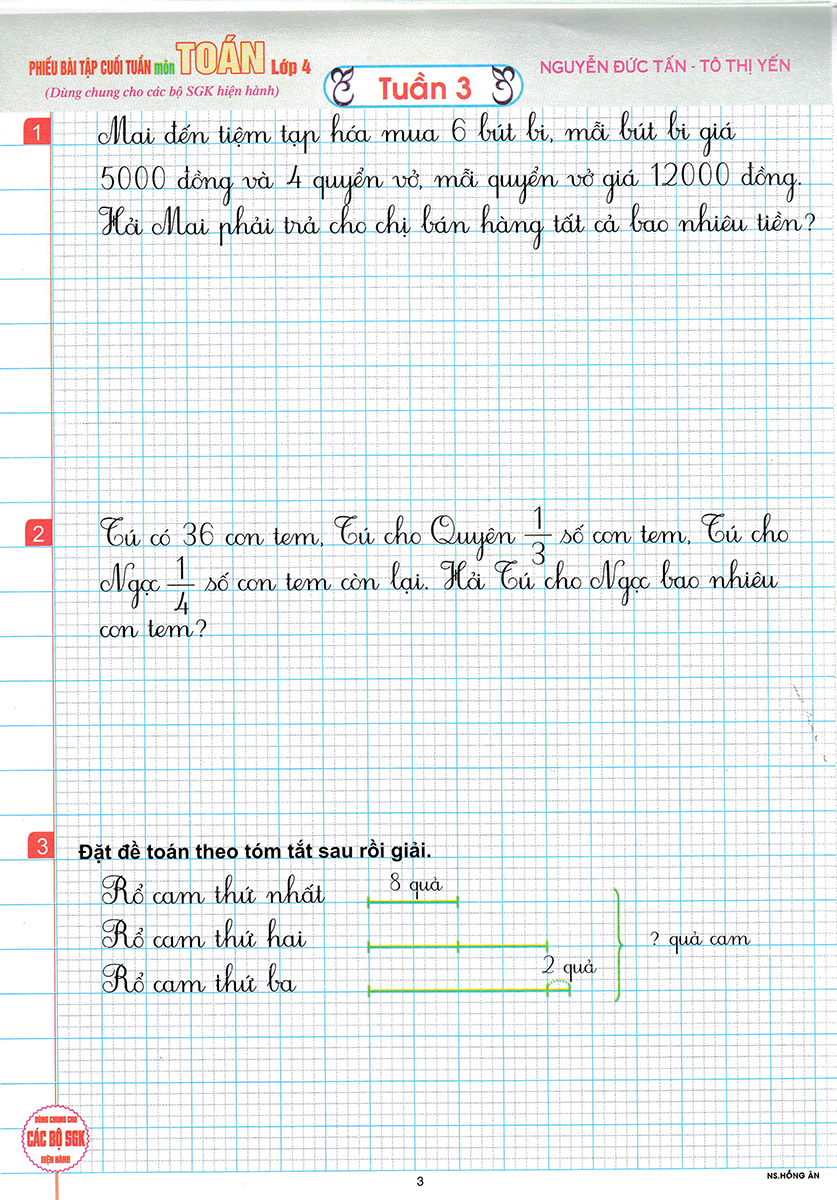 PHIẾU BÀI TẬP CUỐI TUẦN môn TOÁN Lớp 4
(Dùng chung cho các bộ SGK hiện hành)
Tuần 3
NGUYỄN ĐỨC TẤN - TÔ THỊ YẾN
1
Mai đến tiệm tạp hóa mua 6 bút bi, mỗi bút bi giá
5000 đồng và 4 quyển vở, mỗi quyển vở giá 12000 đồng.
Hỏi Mai phải trả cho chị bán hàng tất cả bao nhiêu tiền?
2
Tú có 36 con tem, Tú cho Quyên 1/3 số con tem, Tú cho
Ngọc 1/4 số con tem còn lại. Hỏi Tú cho Ngọc bao nhiêu
con tem?
3
Đặt đề toán theo tóm tắt sau rồi giải.
Rổ cam thứ nhất 8 quả
Rổ cam thứ hai ? quả cam
Rổ cam thứ ba 2 quả
DÙNG CHUNG CHO
CÁC BỘ SGK
HIỆN HÀNH
3
NS.HỒNG ÂN